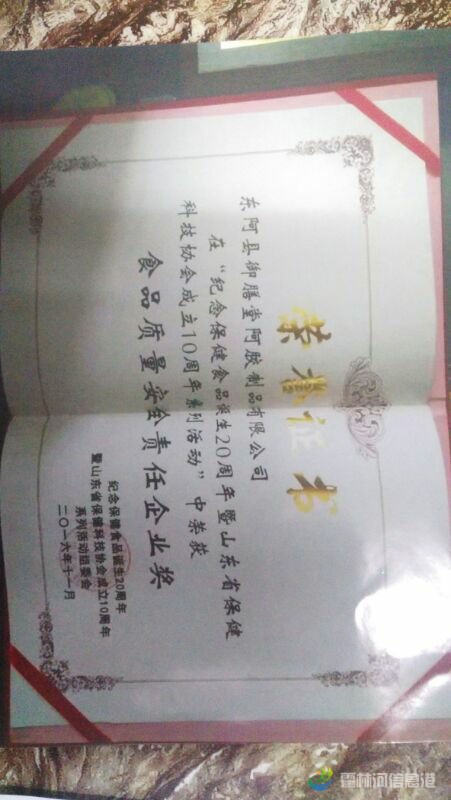 荣誉证书
东阿县御膳堂阿胶制品有限公司
在“纪念保健食品诞生20周年暨山东省保健
科技协会成立10周年系列活动”中荣获
食品质量安全责任企业奖
纪念保健食品诞生20周年
暨山东省保健科技协会成立10周年
系列活动组委会
二〇一六年十一月
霍林河信息港